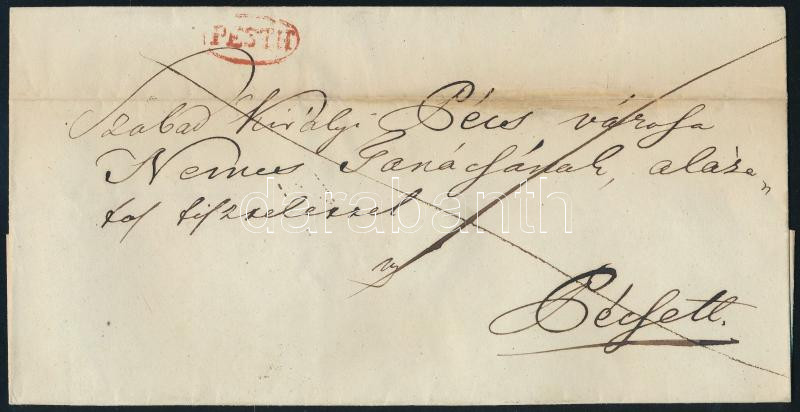 PESTH
Szabad Királyi Pécs városa
Nemes Tanácsának, aláza„
tos tisztelettel
darabanth
Pécsett.